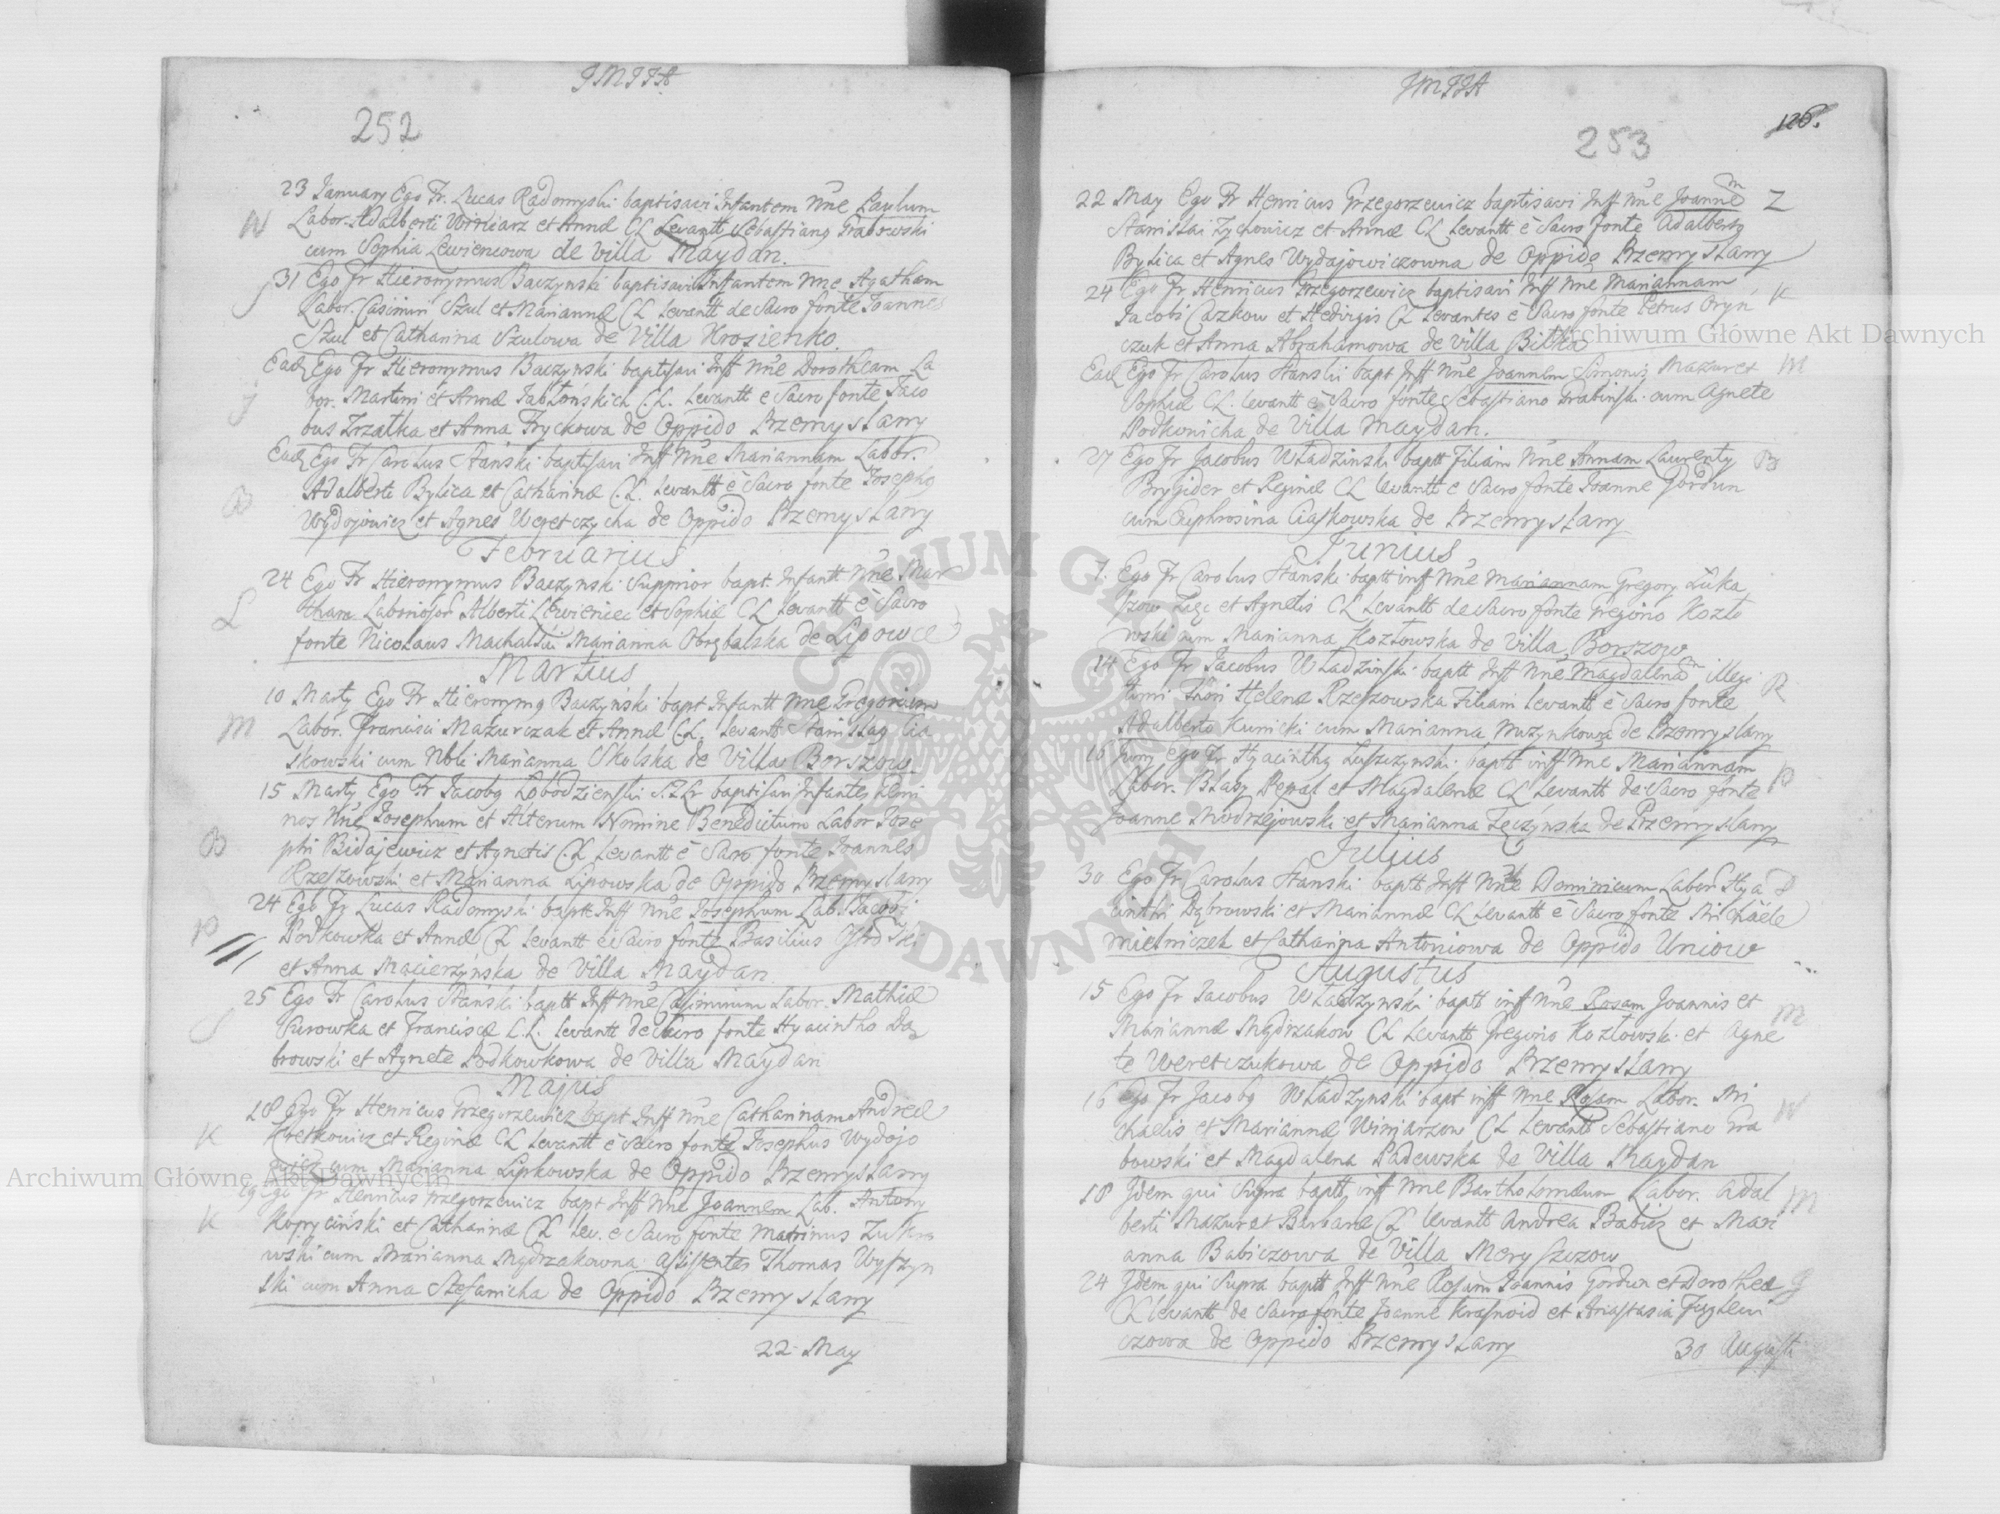 JMJJA
252
23 January Ego Fr. Lucas Radomyski baptisavi Infantem Nne Paulum
Labor. Adalberti Winiarz et Annæ CL Levantt Sebastiang Grabowski
N
cum Sophia Lewieniowa de Villa Maydan.
31 Ego Fr Hieronymus Baczynski baptisavi Infantem Nne Agatham
J
Labor. Casimiri Szul et Mariannæ CL Levantt de Sacro fonte Joannes
Szul et Catharina Szulowa de Villa Krosienko.
Ead Ego Fr Hieronymus Baczynski baptisavi Inff Nne Dorotheam La
bor. Martini et Annæ Jabłońskich C.L. Levantt e Sacro fonte Jaco
J
bus Trzałka et Anna Fryckowa de Oppido Przemyslany
Ead Ego Fr Carolus Stański baptisavi Inff Nne Mariannam Labor.
Adalberti Bylica et Catharinæ C.L. Levantt è Sacro fonte Josepho
B
Wydojowicz et Agnes Weretczycha de Oppido Przemyslany
Februarius
24 Ego Fr Hieronymus Baczynski Supprior bapt. Infantt Nne Mar
tham Laboriosor Alberti Lewieniec et Sophiæ CL Levantt è Sacro
L
fonte Nicolaus Machalski Marianna Obrębalska de Lipowce
Martius
10 Marty Ego Fr Hieronymg Baczyński bapt Infantt Nne Gregorium
Labor. Francisci Mazurczak et Annæ CL. Levantt Stanislag Cia
M
skowski cum Nobli Marianna Okolska de Villa Borszow
15 Marty Ego Fr Jacobg Łobodzienski SZLr baptisavi Infantes Gemi
nos Nne Josephum et Alterum Nomine Benedictum Labor Jose
B
phi Bidajewicz et Agnetis C.L Levantt è Sacro fonte Joannes
Rzeszowski et Marianna Lipowska de Oppido Przemyslany
24 Ego Fr Lucas Radomyski baptt Inff Nne Josephum Lab. Jacobi
P
Podkowka et Annæ CL Levantt è Sacro fonte Basilius
et Anna Macierzyńska de Villa Maydan
25 Ego Fr Carolus Stański baptt Inff Nne Casimirum Labor. Mathiæ
S
Surowka et Franciscæ C.L. Levantt de Sacro fonte Hyacintho Dą
browski et Agnete Podkowkowa de Villa Maydan
Majus
18 Ego Fr Henricus Grzegorzewicz bapt Inff Nne Catharinam Andreæ
K
Kretkowicz et Reginæ CL Levantt è Sacro fonte Josephus Wydojo
wicz cum Marianna Lipkowska de Oppido Przemyslany
19 Ego Fr Henricus Grzegorzewicz bapt Inff Nne Joannem Lab. Antony
K
Kopryciński et Catharinæ CL Lev. e Sacro fonte Matrinus Zukro
wski cum Marianna Mądrzakowna. Assistentes Thomas Wyszyn
ski cum Anna Stefanicha de Oppido Przemyslany
22 May
JMJJA
126.
253
22 May Ego Fr Henricus Grzegorzewicz baptisavi Inff Nne Joannem Z
Stanislai Zychowicz et Annæ CL Levantt è Sacro fonte Adalbertg
Bylica et Agnes Wydajowiczowna de Oppido Przemyslany
24 Ego Fr Henricus Grzegorzewicz baptisavi Inff Nne Mariannam
Jacobi Cazkow et Hedvigis CL Levantes e Sacro fonte Petrus Oryn K
czuk et Anna Abrahamowa de Villa Bitka
Ead Ego Fr Carolus Stanski bapt Inff Nne Joannem Simonis Mazur et M
Sophiæ CL. Levantt è Sacro fonte Sebastiano Grabinski cum Agnete
Podkonicha de Villa Maydan.
27 Ego Fr Jacobus Władzinski baptt Filiam Nne Annam Laurenty B
Brygider et Reginæ CL Levantt e Sacro fonte Joanne Gordun
cum Euphrosina Ciaskowska de Przemyslany
Junius
7. Ego Fr Carolus Stanski baptt inff Nne Mariannam Gregory Luka
szow et Agnetis CL Levantt de Sacro fonte Gregorio Kozło
wski cum Marianna Kozłowska de Villa Borszow
14 Ego Fr Jacobus Władzinski baptt Inff Nne Magdalenam illegi
timi Thori Helenæ Rzeszowska Filiam Levantt è Sacro fonte R
Adalberto Kunicki cum Marianna Muzynkowa de Przemyslany
16 Juny Ego Fr Hyacinthg Luszczynski baptt inff Nne Mariannam
Labor. Blasy Pepał et Magdalenæ CL Levantt de Sacro fonte P
Joanne Modrzejowski et Marianna Tęczyńska de Przemyslany
Julius
30 Ego Fr Carolus Stanski baptt Inff Nne Dominicum Labor Hya D
cinthi Dąbrowski et Mariannæ CL Levantt è Sacro fonte Michaele
Mielniczek et Catharina Antoniowa de Oppido Uniow
Augustus
15 Ego Fr Jacobus Władzynski baptt inff Nne Rosam Joannis et
Mariannæ Mądrzakow CL Levantt Gregorio Kozłowski et Agne M
te Weretczukowa de Oppido Przemyslany
16 Ego Fr Jacobg Władzynski bapt inff Nne Rosam Labor. Mi
chaelis et Mariannæ Winiarzow CL Levantt Sebastiano Gra W
bowski et Magdalena Padewska de Villa Maydan
18 Idem qui Supra baptt inff Nne Bartholomæum Labor. Adal
berti Mazur et Barbaræ CL Levantt Andrea Babicz et Mari M
anna Babiczowa de Villa Meryszczow
24 Idem qui Supra baptt Inff Nne Rosam Joannis Gordun et Dorotheæ G
CL Levantt de Sacro fonte Joanne Krasnoid et Anastasia
czowa de Oppido Przemyslany
30 Augusti
Archiwum Główne Akt Dawnych
Archiwum Główne Akt Dawnych
ARCHIWUM GŁÓWNE AKT DAWNYCH